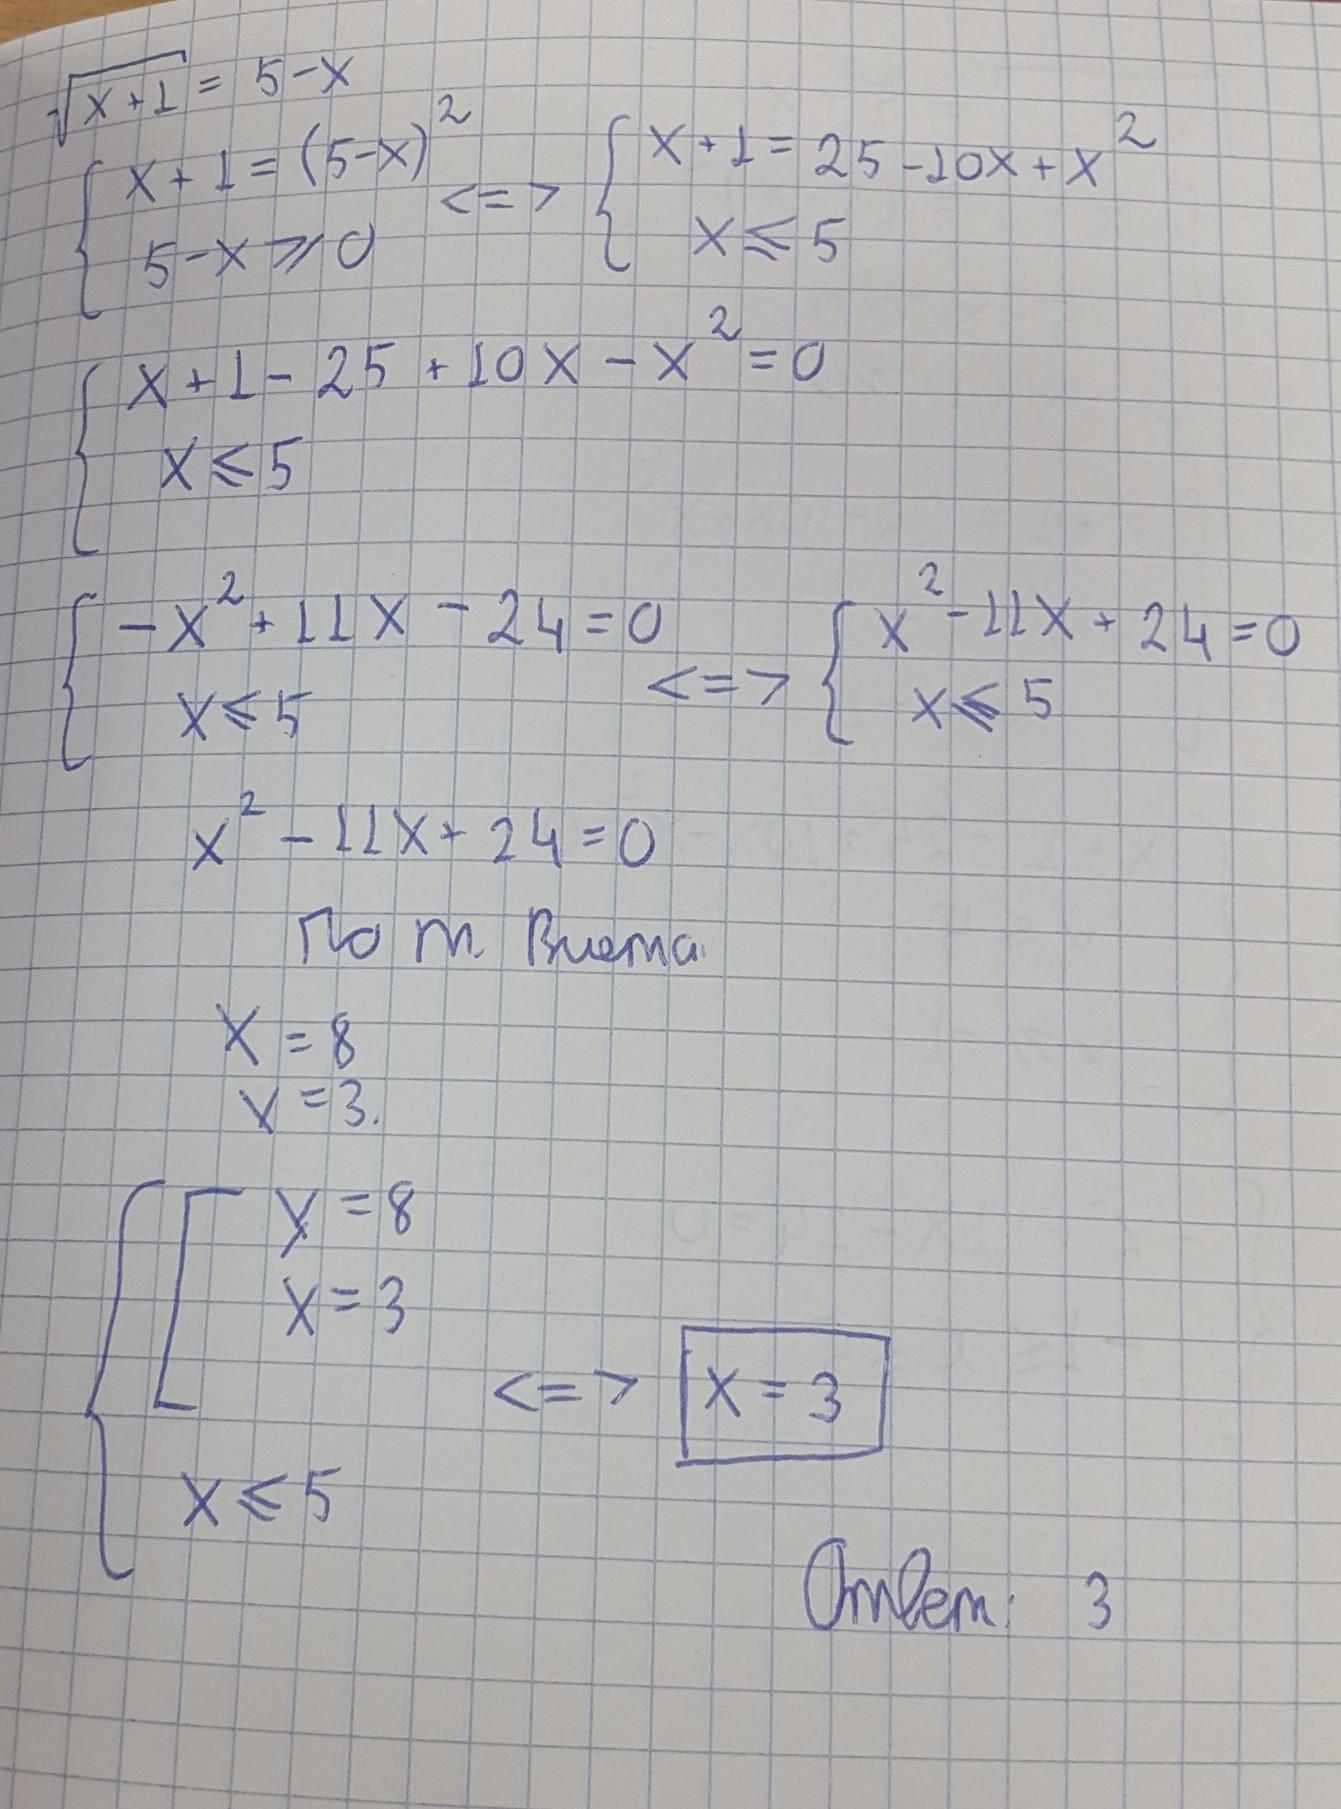 √(x+1) = 5-x
{ x+1 = (5-x)² <=> { x+1 = 25-10x+x²
5-x ⩾ 0 x ⩽ 5
{ x+1-25+10x-x² = 0
x ⩽ 5
{ -x²+11x-24=0 <=> { x²-11x+24=0
x ⩽ 5 x ⩽ 5
x²-11x+24=0
По т. Виета
x = 8
x = 3.
{ [ x = 8
x = 3
<=> x = 3
x ⩽ 5
Ответ: 3